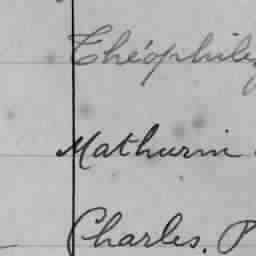 Théophile
Mathurin
Charles. P